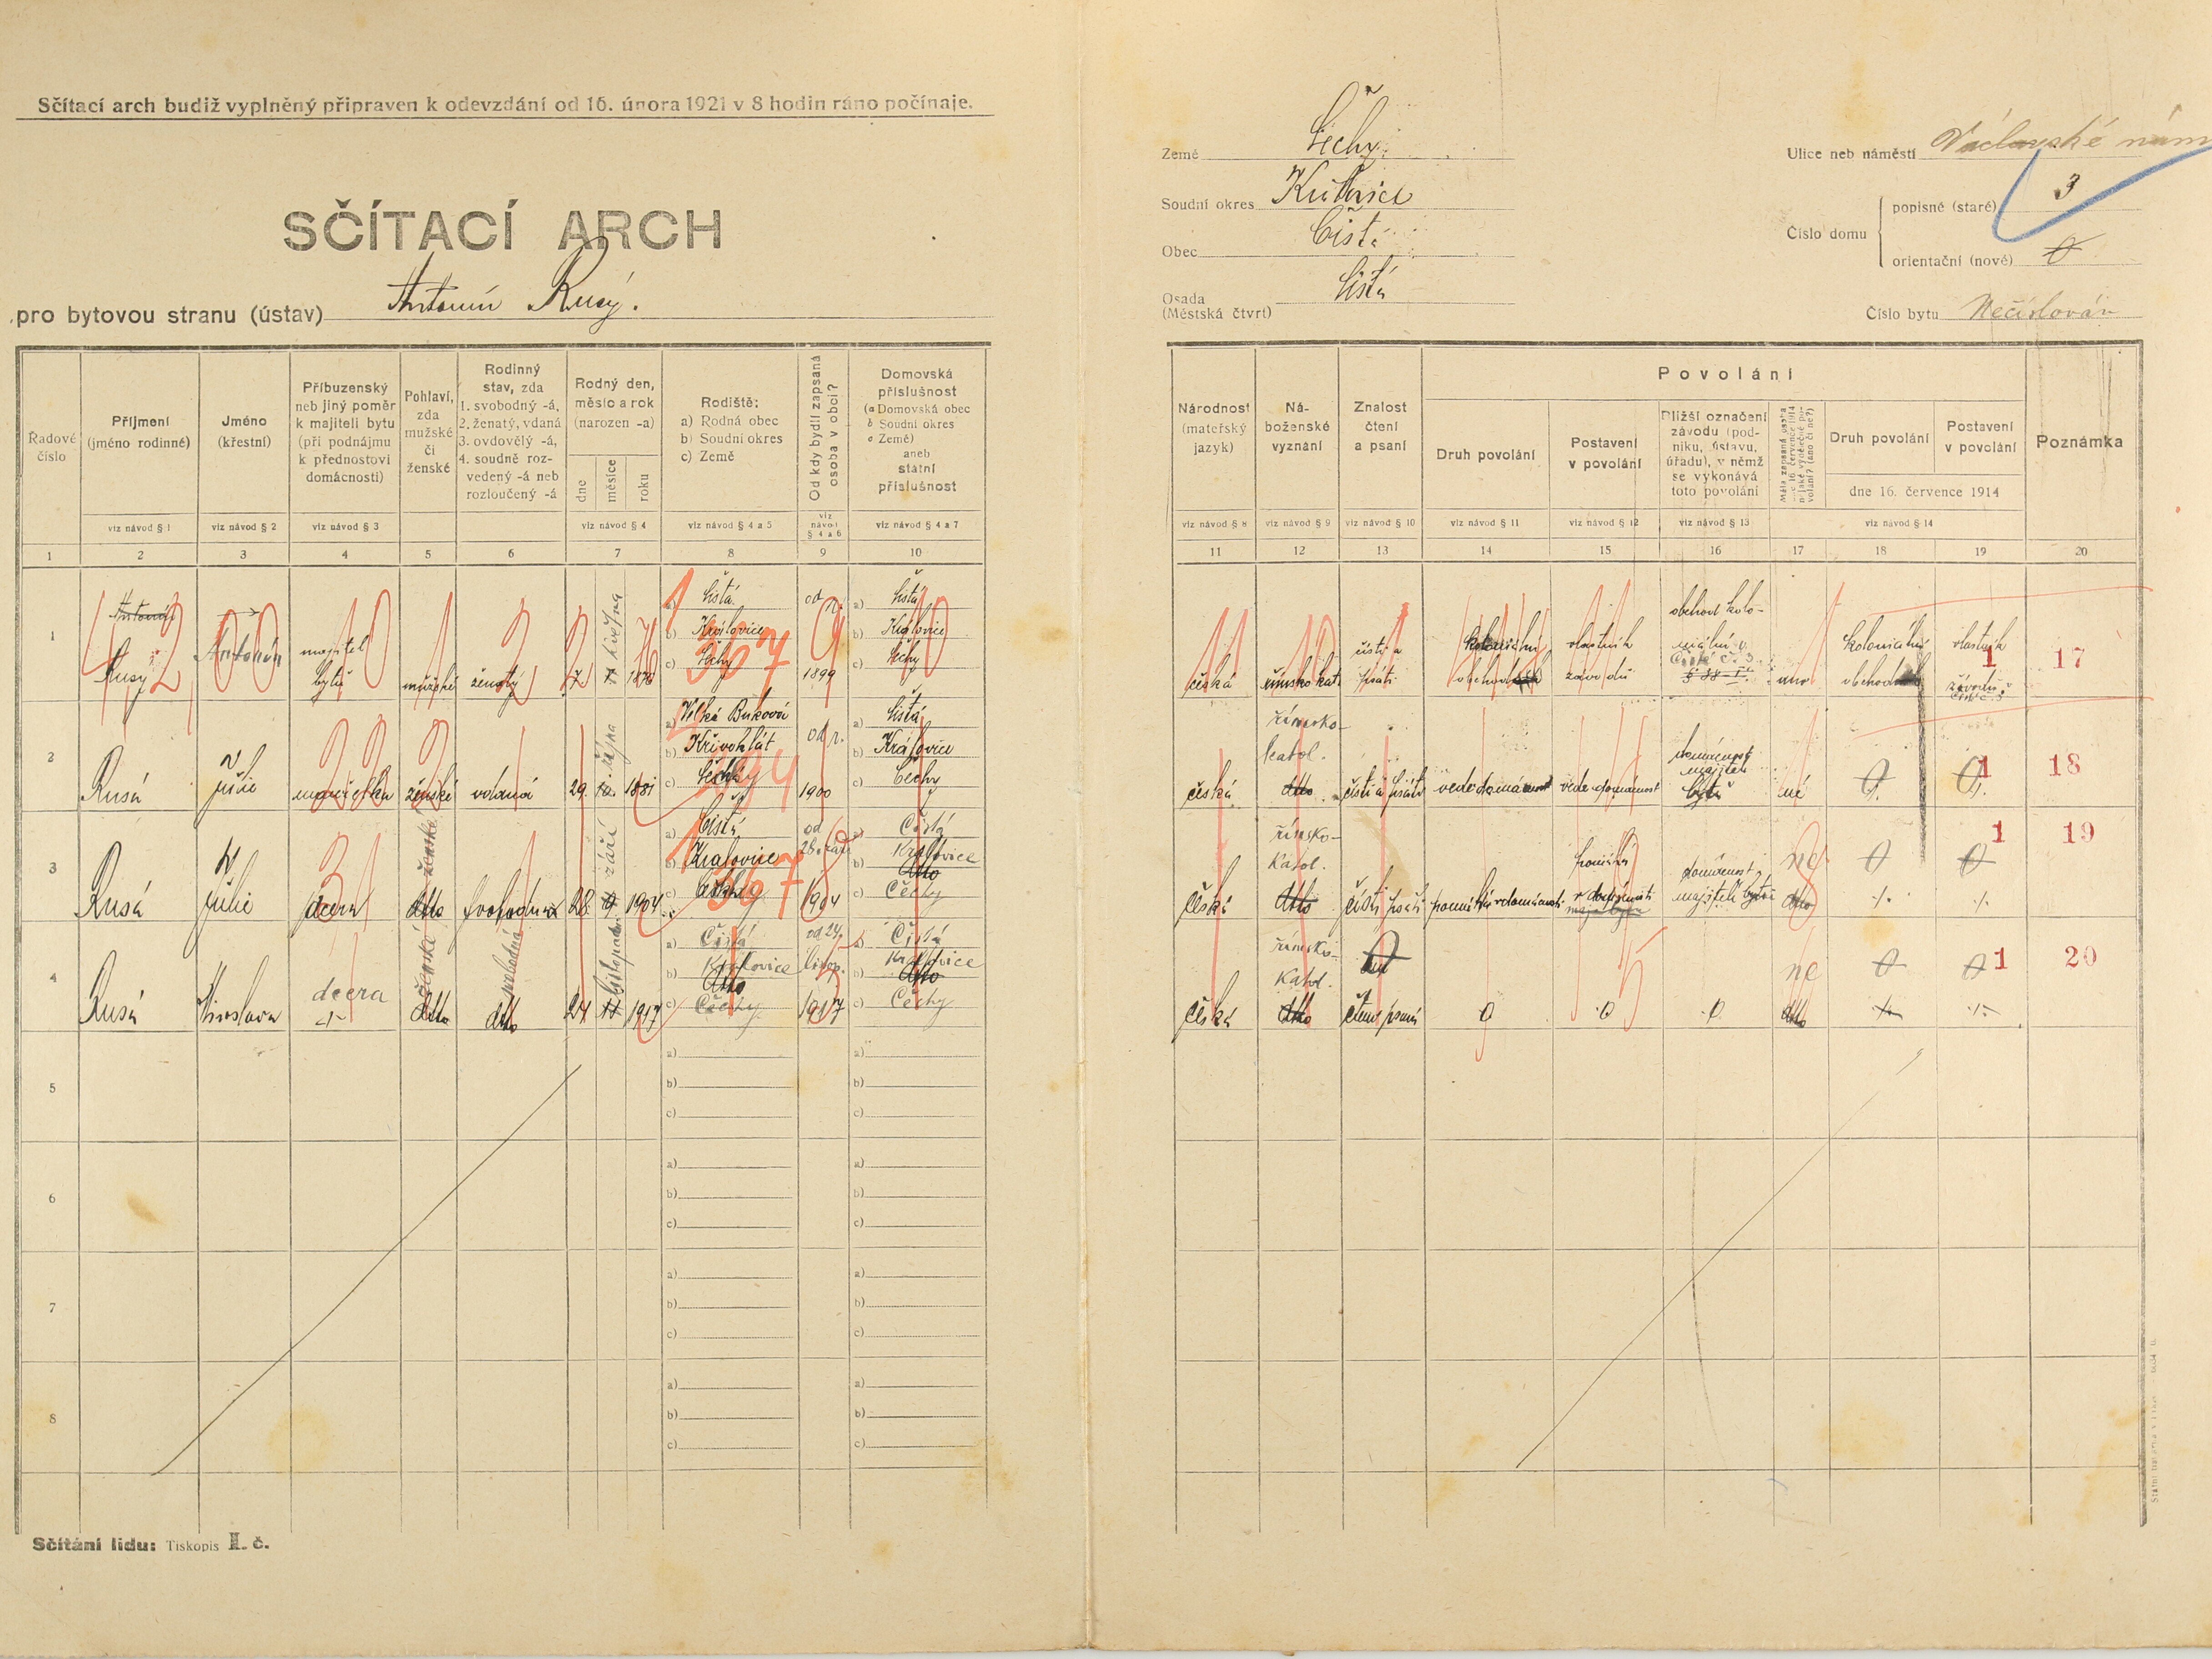 Sčítací arch budiž vyplněný připraven k odevzdání od 16. února 1921 v 8 hodin ráno počínaje.
SČÍTACÍ ARCH
pro bytovou stranu (ústav) Antonín Rusý.
Země Čechy
Soudní okres
Obec Čistá
Osada Čistá
(Městská čtvrt)
Ulice neb náměstí Václavské nám
Číslo domu
popisné (staré) 3
orientační (nové) 0
Číslo bytu Nečíslován
Řadové číslo
Příjmení
(jméno rodinné)
viz návod § 1
Jméno
(křestní)
viz návod § 2
Příbuzenský
neb jiný poměr
k majiteli bytu
(při podnájmu
k přednostovi
domácnosti)
viz návod § 3
Pohlaví,
zda
mužské
či
ženské
Rodinný
stav, zda
1. svobodný -á,
2. ženatý, vdaná
3. ovdovělý -á,
4. soudně roz-
vedený -á neb
rozloučený -á
Rodný den,
měsíc a rok
(narozen -a)
dne
měsíce
roku
viz návod § 4
Rodiště:
a) Rodná obec
b) Soudní okres
c) Země
viz návod § 4 a 5
Od kdy bydlí zapsaná
osoba v obci?
viz
návod
§ 4 a 6
Domovská
příslušnost
(a Domovská obec
b Soudní okres
c Země)
aneb
státní
příslušnost
viz návod § 4 a 7
Národnost
(mateřský
jazyk)
viz návod § 8
Ná-
boženské
vyznání
viz návod § 9
Znalost
čtení
a psaní
viz návod § 10
Povolání
Druh povolání
viz návod § 11
Postavení
v povolání
viz návod § 12
Bližší označení
závodu (pod-
niku, ústavu,
úřadu), v němž
se vykonává
toto povolání
viz návod § 13
Měla zapsaná osoba
dne 16. července 1914
nějaké výdělečné po-
volání? (ano či ne?)
Druh povolání
Postavení
v povolání
dne 16. července 1914
viz návod § 14
Poznámka
1 2 3 4 5 6 7 8 9 10
11 12 13 14 15 16 17 18 19 20
1
Antonín
Rusý
Antonín
majitel
bytu
mužské
ženatý
7.
1876
a) Čistá
b) Kralovice
c) Čechy
367
od r.
1899
a) Čistá
b) Kralovice
c) Čechy
česká
římsko kat.
čísti a
psáti
koloniální
obchod
vlastník
závodu
obchod kolo-
niální
ano
koloniální
obchod
vlastník
závodu
1
17
2
Rusá
Julie
manželka
ženské
vdaná
29. 10. října 1881
a) Velká Buková
b) Křivoklát
c) Čechy
od r.
1900
a) Čistá
b) Kralovice
c) Čechy
česká
římsko-
katol.
dtto
čísti a psáti
vede domácnost
vede domácnost
domácnost
majitele
bytu
ne
0
0
1
18
3
Rusá
Julie
dcera
ženské
dtto
svobodná
28. 9. září 1904
a) Čistá
b) Kralovice
c) Čechy
367
od
28. září
1904
a) Čistá
b) Kralovice
dtto
c) Čechy
česká
římsko-
katol.
dtto
čísti psáti
pomáhá v domácnosti
pomáhá
v domácnosti
domácnost
majitele bytu
ne
dtto
0
0
1
19
4
Rusá
Miroslava
dcera
ženské
dtto
svobodná
dtto
24. 11 listopadu 1917
a) Čistá
b) Kralovice
dtto
c) Čechy
od 24.
listop.
1917
a) Čistá
b) Kralovice
dtto
c) Čechy
česká
římsko-
katol.
dtto
0
0
0
0
ne
dtto
0
0
1
20
5
a)
b)
c)
a)
b)
c)
6
a)
b)
c)
a)
b)
c)
7
a)
b)
c)
a)
b)
c)
8
a)
b)
c)
a)
b)
c)
Sčítání lidu: Tiskopis I. č.